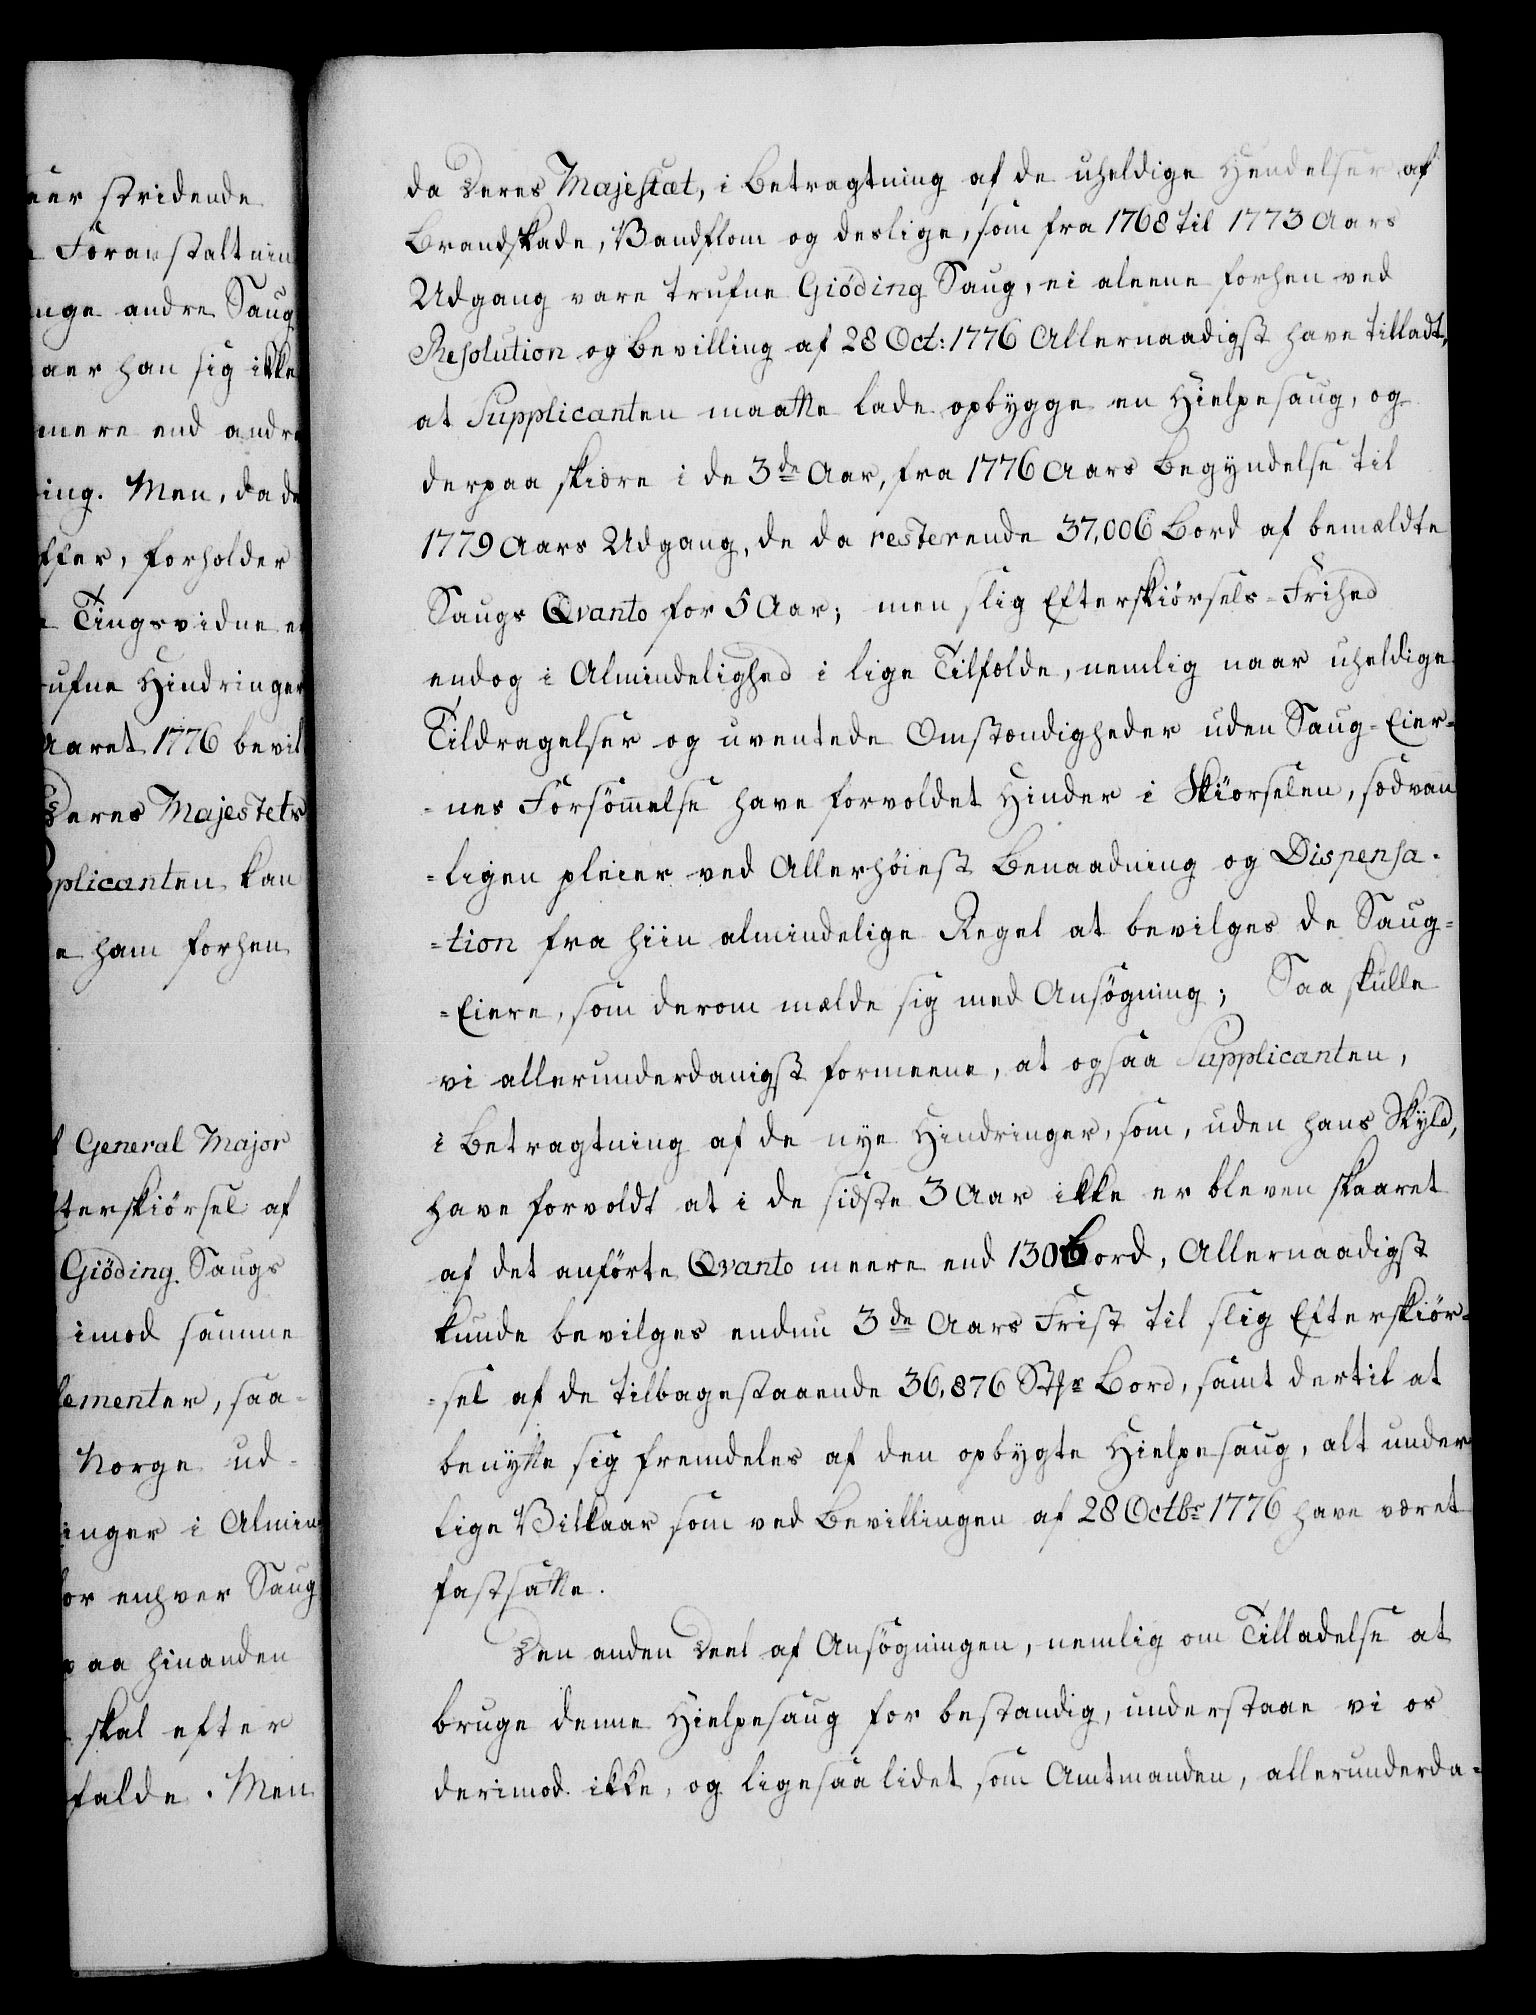 eer stridende
Foranstaltnin
nge andre Saug
aer han sig ikke
mere end andre
ing. Men, da de
ffer, forholder
Tingsvidne er
rufne Hindringer
Aaret 1776 bevil
Deres Majestets
plicanten kan
e ham forhen
General Major
fterskiörsel af
Giöding Saugs
imod samme
lementer, saa-
Norge ud-
inger i Almin
for enhver Saug
paa hinanden
skal efter
falde. Men
da Deres Majestæt, i Betragtning af de uheldige Hendelser af
Brandskade, Vandflom og deslige, som fra 1768 til 1773 Aars
Udgang vare trufne Giöding Saug, ei aleene forhen ved
Resolution og Bevilling af 28 Oct: 1776 Allernaadigst have tilladt,
at Supplicanten maatte lade opbygge en Hielpesaug, og
derpaa skiære i de 3de Aar, fra 1776 Aars Begyndelse til
1779 Aars Udgang, de da resterende 37,006 Bord af bemældte
Saugs Qvanto for 5 Aar; men slig Efterskiörsels-Frihed
endog i Almindelighed i lige Tilfælde, nemlig naar uheldige
Tildragelser og uventede Omstændigheder uden Saug-Eier=
=nes Forsömmelse have forvoldet Hinder i Skiörselen, sædvan
=ligen pleier ved Allerhöiest Benaadning og Dispensa=
=tion fra hiin almindelige Regel at bevilges de Saug=
=Eiere, som derom mælde sig med Ansögning; Saa skulle
vi allerunderdanigst formeene, at ogsaa Supplicanten,
i Betragtning af de nye Hindringer, som, uden hans Skyld,
have forvoldt at i de sidste 3 Aar ikke er bleven skaaret
af det anförte Qvanto meere end 130 Bord, Allernaadigst
kunde bevilges endnu 3de Aars Frist til slig Efterskiör=
=sel af de tilbagestaaende 36,876 Stkr Bord, samt dertil at
benytte sig fremdeles af den opbygte Hielpesaug, alt under
lige Vilkaar som ved Bevillingen af 28 Octbr 1776 have været
fastsatte.
Den anden Deel af Ansögningen, nemlig om Tilladelse at
bruge denne Hielpesaug for bestandig, understaae vi os
derimod ikke, og ligesaa lidet som Amtmanden, allerunderda=